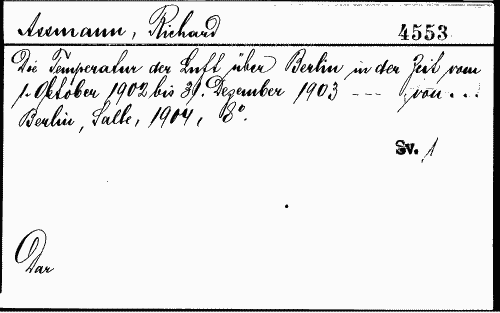 Assmann, Richard 4553
Die Temperatur der Luft über Berlin in der Zeit vom
1. Oktober 1902 bis 31. Dezember 1903 --- von...
Berlin, Salle, 1904, 8°.
Sv. 1
Dar